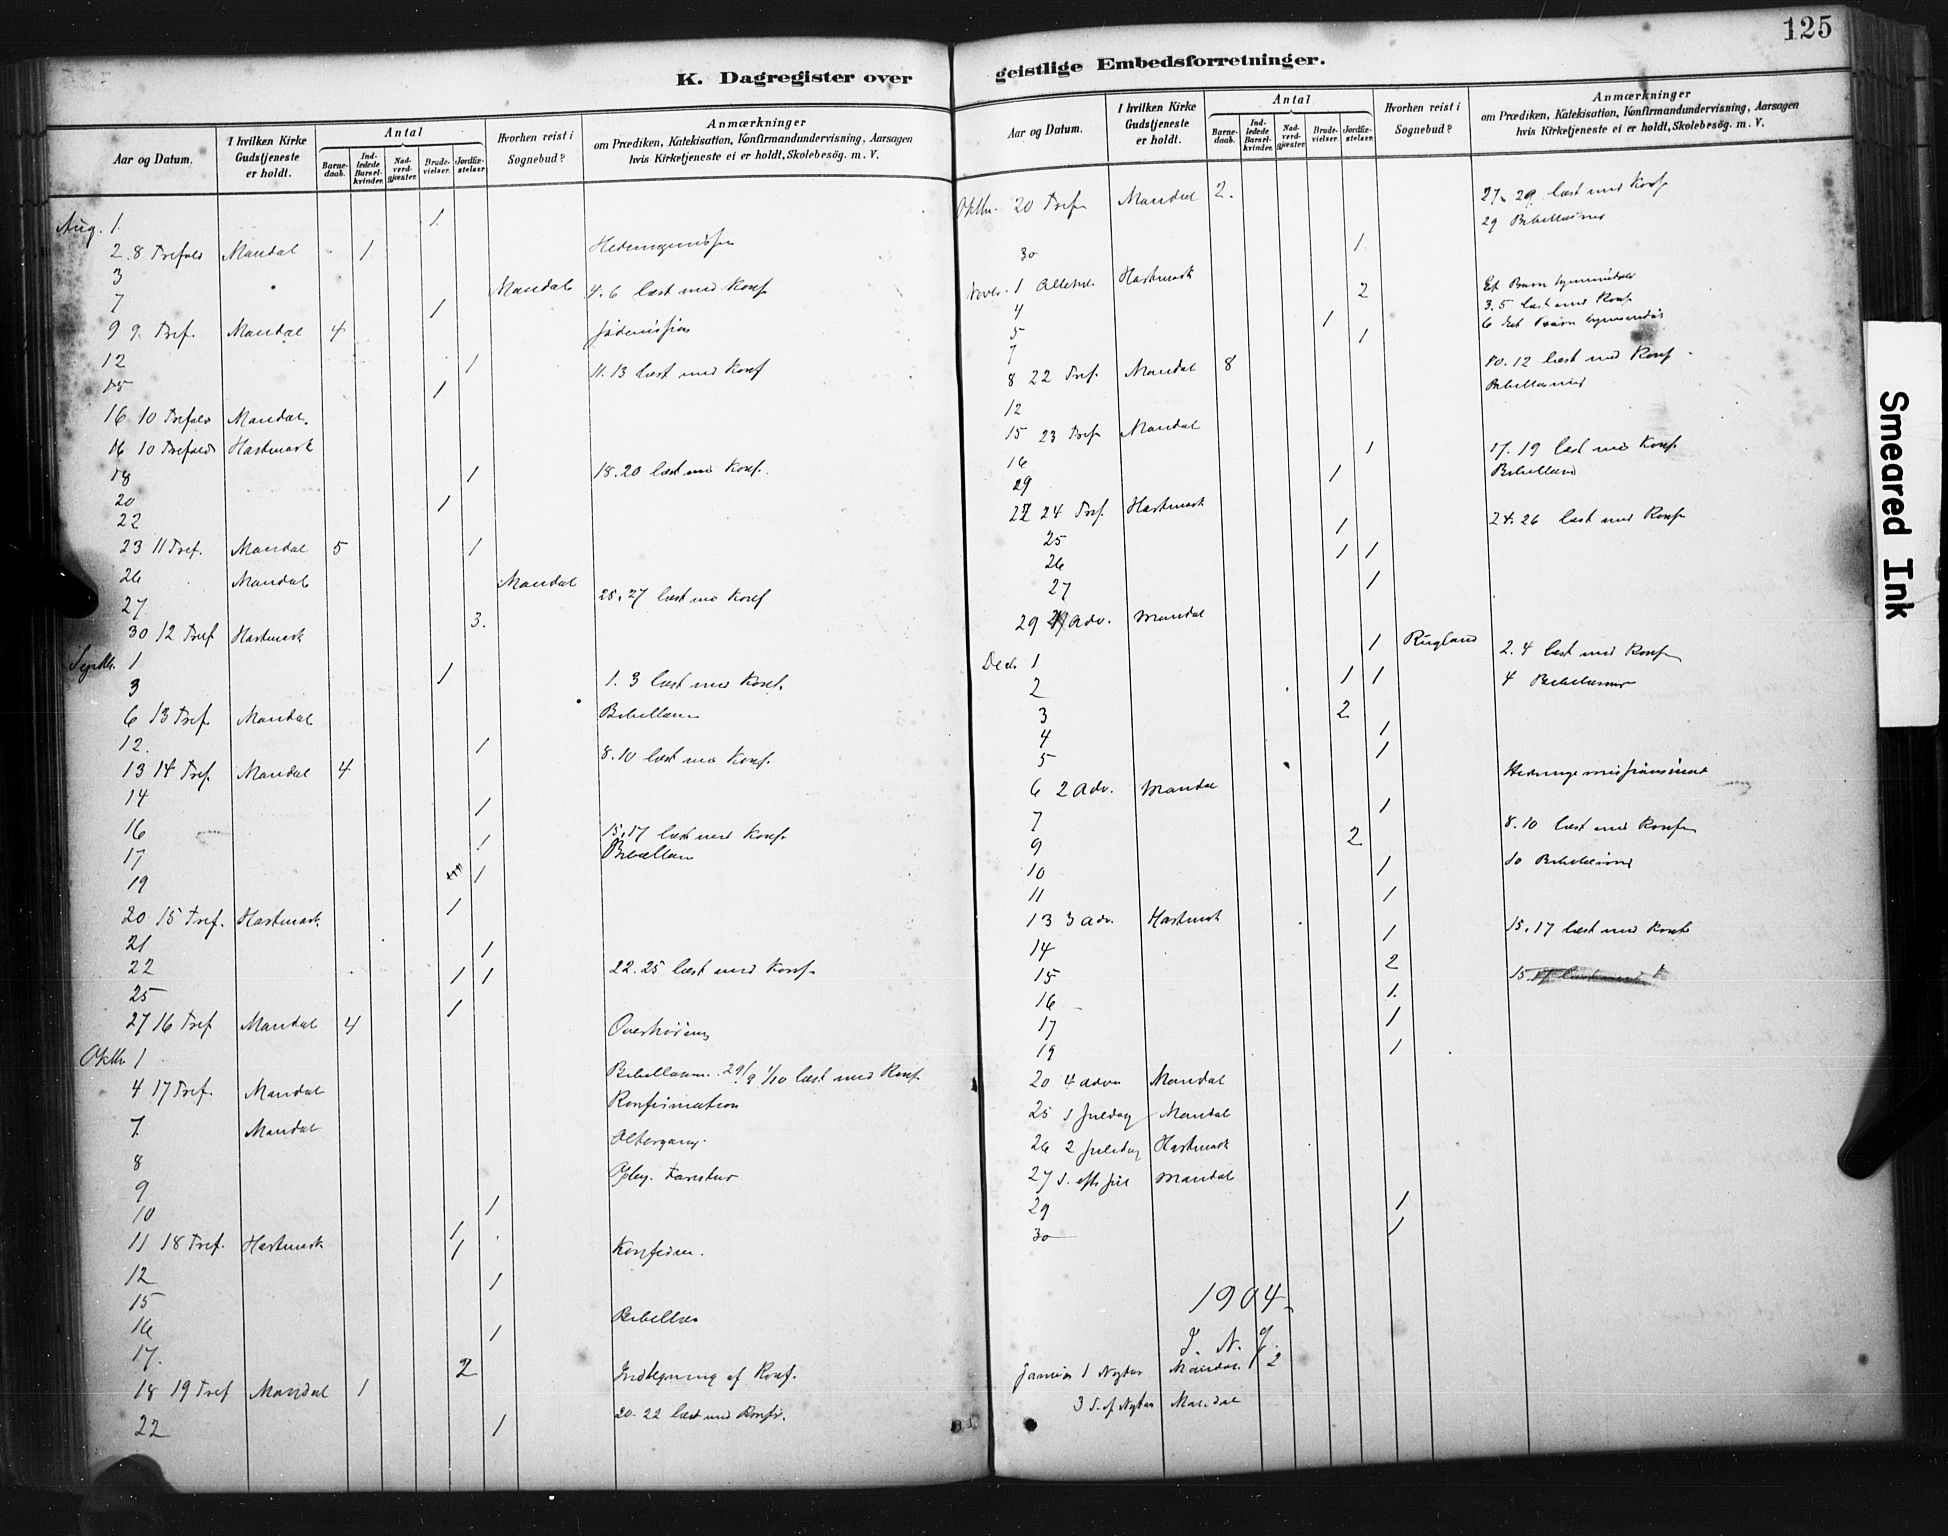 125
K. Dagregister over
geistlige Embedsforretninger.
Aar og Datum.
I hvilken Kirke Gudstjeneste er holdt.
Antal
Barnedaab.
Indledede Barselkvinder.
Nadverdgjæster.
Brudevielser.
Jordfæstelser
Hvorhen reist i Sognebud?
Anmærkninger
om Prædiken, Katekisation, Konfirmandundervisning, Aarsagen
hvis Kirketjeneste ei er holdt, Skolebesög. m. V.
Aug. 1. 1.
2. 8 Trefol Mandal 1
3 Mandal 4. 6 læst med Konf
7 1
9 9. Tref. Mandal 4
12 1 11. 13 læst med Konf
15 1
16 10 Trefol Mandal.
16 10 Trefold Hartmark
18 1 18. 20 læst med Konf.
20 1
22
23 11 Tref. Mandal 5 1
26 Mandal Mandal
27 25. 27 læst med Konf
30 12 Tref Hartmark 3.
Septbr. 1
3 1 1. 3 læst med Konf.
6 13 Tref Mandal
12. 1
13 14 Tref. Mandal 4 8. 10 læst med Konf.
14 1
16 1 15. 17 læst med Konf.
17 1
19 1
20 15 Tref. Hartmark.
21 1
22 1 1 22. 25 læst med Konf.
25 1
27 16 Tref Mandal 4 Overhøring
Oktbr 1
4 17 Tref. Mandal 29/9 1/10 læst med Konf.
Konfirmation
7. Mandal Altergang.
8
9
10 1
11 18 Tref. Hartmark 1 1 Konfirm.
12 1
15
16 1
17. 2
18 19 Tref Mandal 1 Indtegning af Konf.
22 1 20. 22 læst med Konfir.
Aar og Datum.
I hvilken Kirke Gudstjeneste er holdt.
Antal
Barnedaab.
Indledede Barselkvinder.
Nadverdgjæster.
Brudevielser.
Jordfæstelser.
Hvorhen reist i Sognebud?
Anmærkninger
om Prædiken, Katekisation, Konfirmandundervisning, Aarsagen
hvis Kirketjeneste ei er holdt, Skolebesög. m. V.
Oktbr. 20 Tref Mandal 2. 27. 29 læst med Konf
29
30 1.
Novbr. 1 Hartmark Et Barn
4 2 3. 5 læst med Konf.
5 1
7 1
8 22 Tref. Mandal 8 10. 12 læst med Konf.
12
15 23 Tref Mandal
16 1 17. 19 læst med Konf.
29 1
22 24 Tref. Hartmark 24. 26 læst med Konf
25 1
26 1 1
27 1
29 1 Adv. Mandal
Decbr 1 1 Rugland 2. 4 læst med Konf
2 1 1 4
3 2
4 1
5 1
6 2 Adv. Mandal
7 1
9 2 8. 10 læst med Konf
10 1 10
11 1
13 3 Adv. Hartmark
14 1 15. 17 læst med Konf
15 2 15. 17
16 1.
17 1
19 1
20 4 Adv Mandal
25 1 Juledag Mandal
26 2 Juledag Hartmark
27 S. eft Jul Mandal
29 1
30 1
1904
I. N. J.
1 Nytaar Mandal. 2
3 S. ef Nytaar Mandal
Smeared Ink